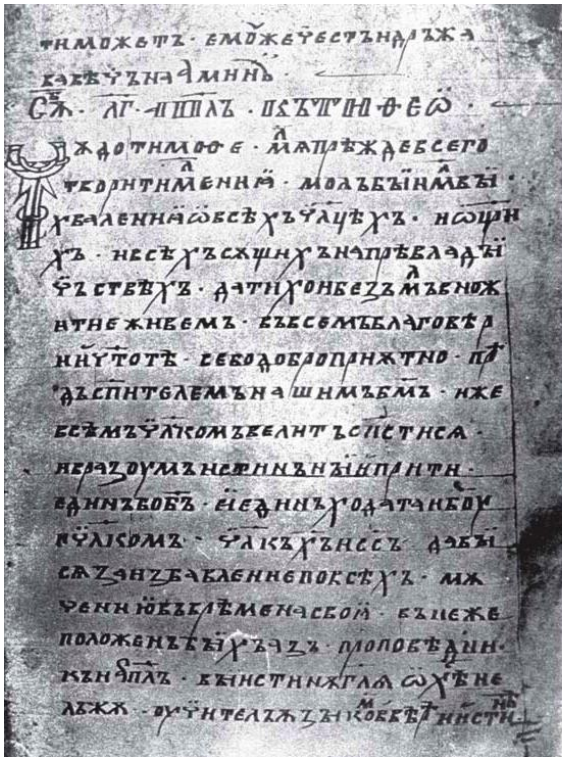 тиможетъ · емоуже честъ и дръжа
ва въ вѣчъ на аминъ ·
сѫ · лг · апплъ · къ тимоѳеѡ ·
чѫдо тимоѳе · млѧ прѣжде всего
творити мленниꙗ · молъбꙑ и млвꙑ ·
хваленниꙗ ѡ всѣхъ члцѣхъ · и ѡ ц҃ри
хъ · и всѣхъ сѫщихъ на прѣвладꙑ
чъствѣхъ · да тихо и безъ млъвно ж
итие живемъ · въ всемъ благовѣр
ии и чтотѣ · се бо добро и приѧтно · прѣ
дъ спителемъ нашимъ бмъ · иже
всѣмъ члкомъ велитъ спстисѧ ·
и въ разоумъ истинънꙑи прити ·
единъ бо бъ · и единъ ходатаи боу
и члкомъ · члкъ хъ исъ · давꙑи
сѧ за избавление по всѣхъ · мѫ
чение въ врѣмена своꙗ · въ неже
положенъ бꙑхъ азъ · проповѣдни
къ и аплъ · въ истинѫ глѧ ѡ хѣ не
лъжѫ · оучитель ѩзꙑкомъ въ вѣрѣ и исти